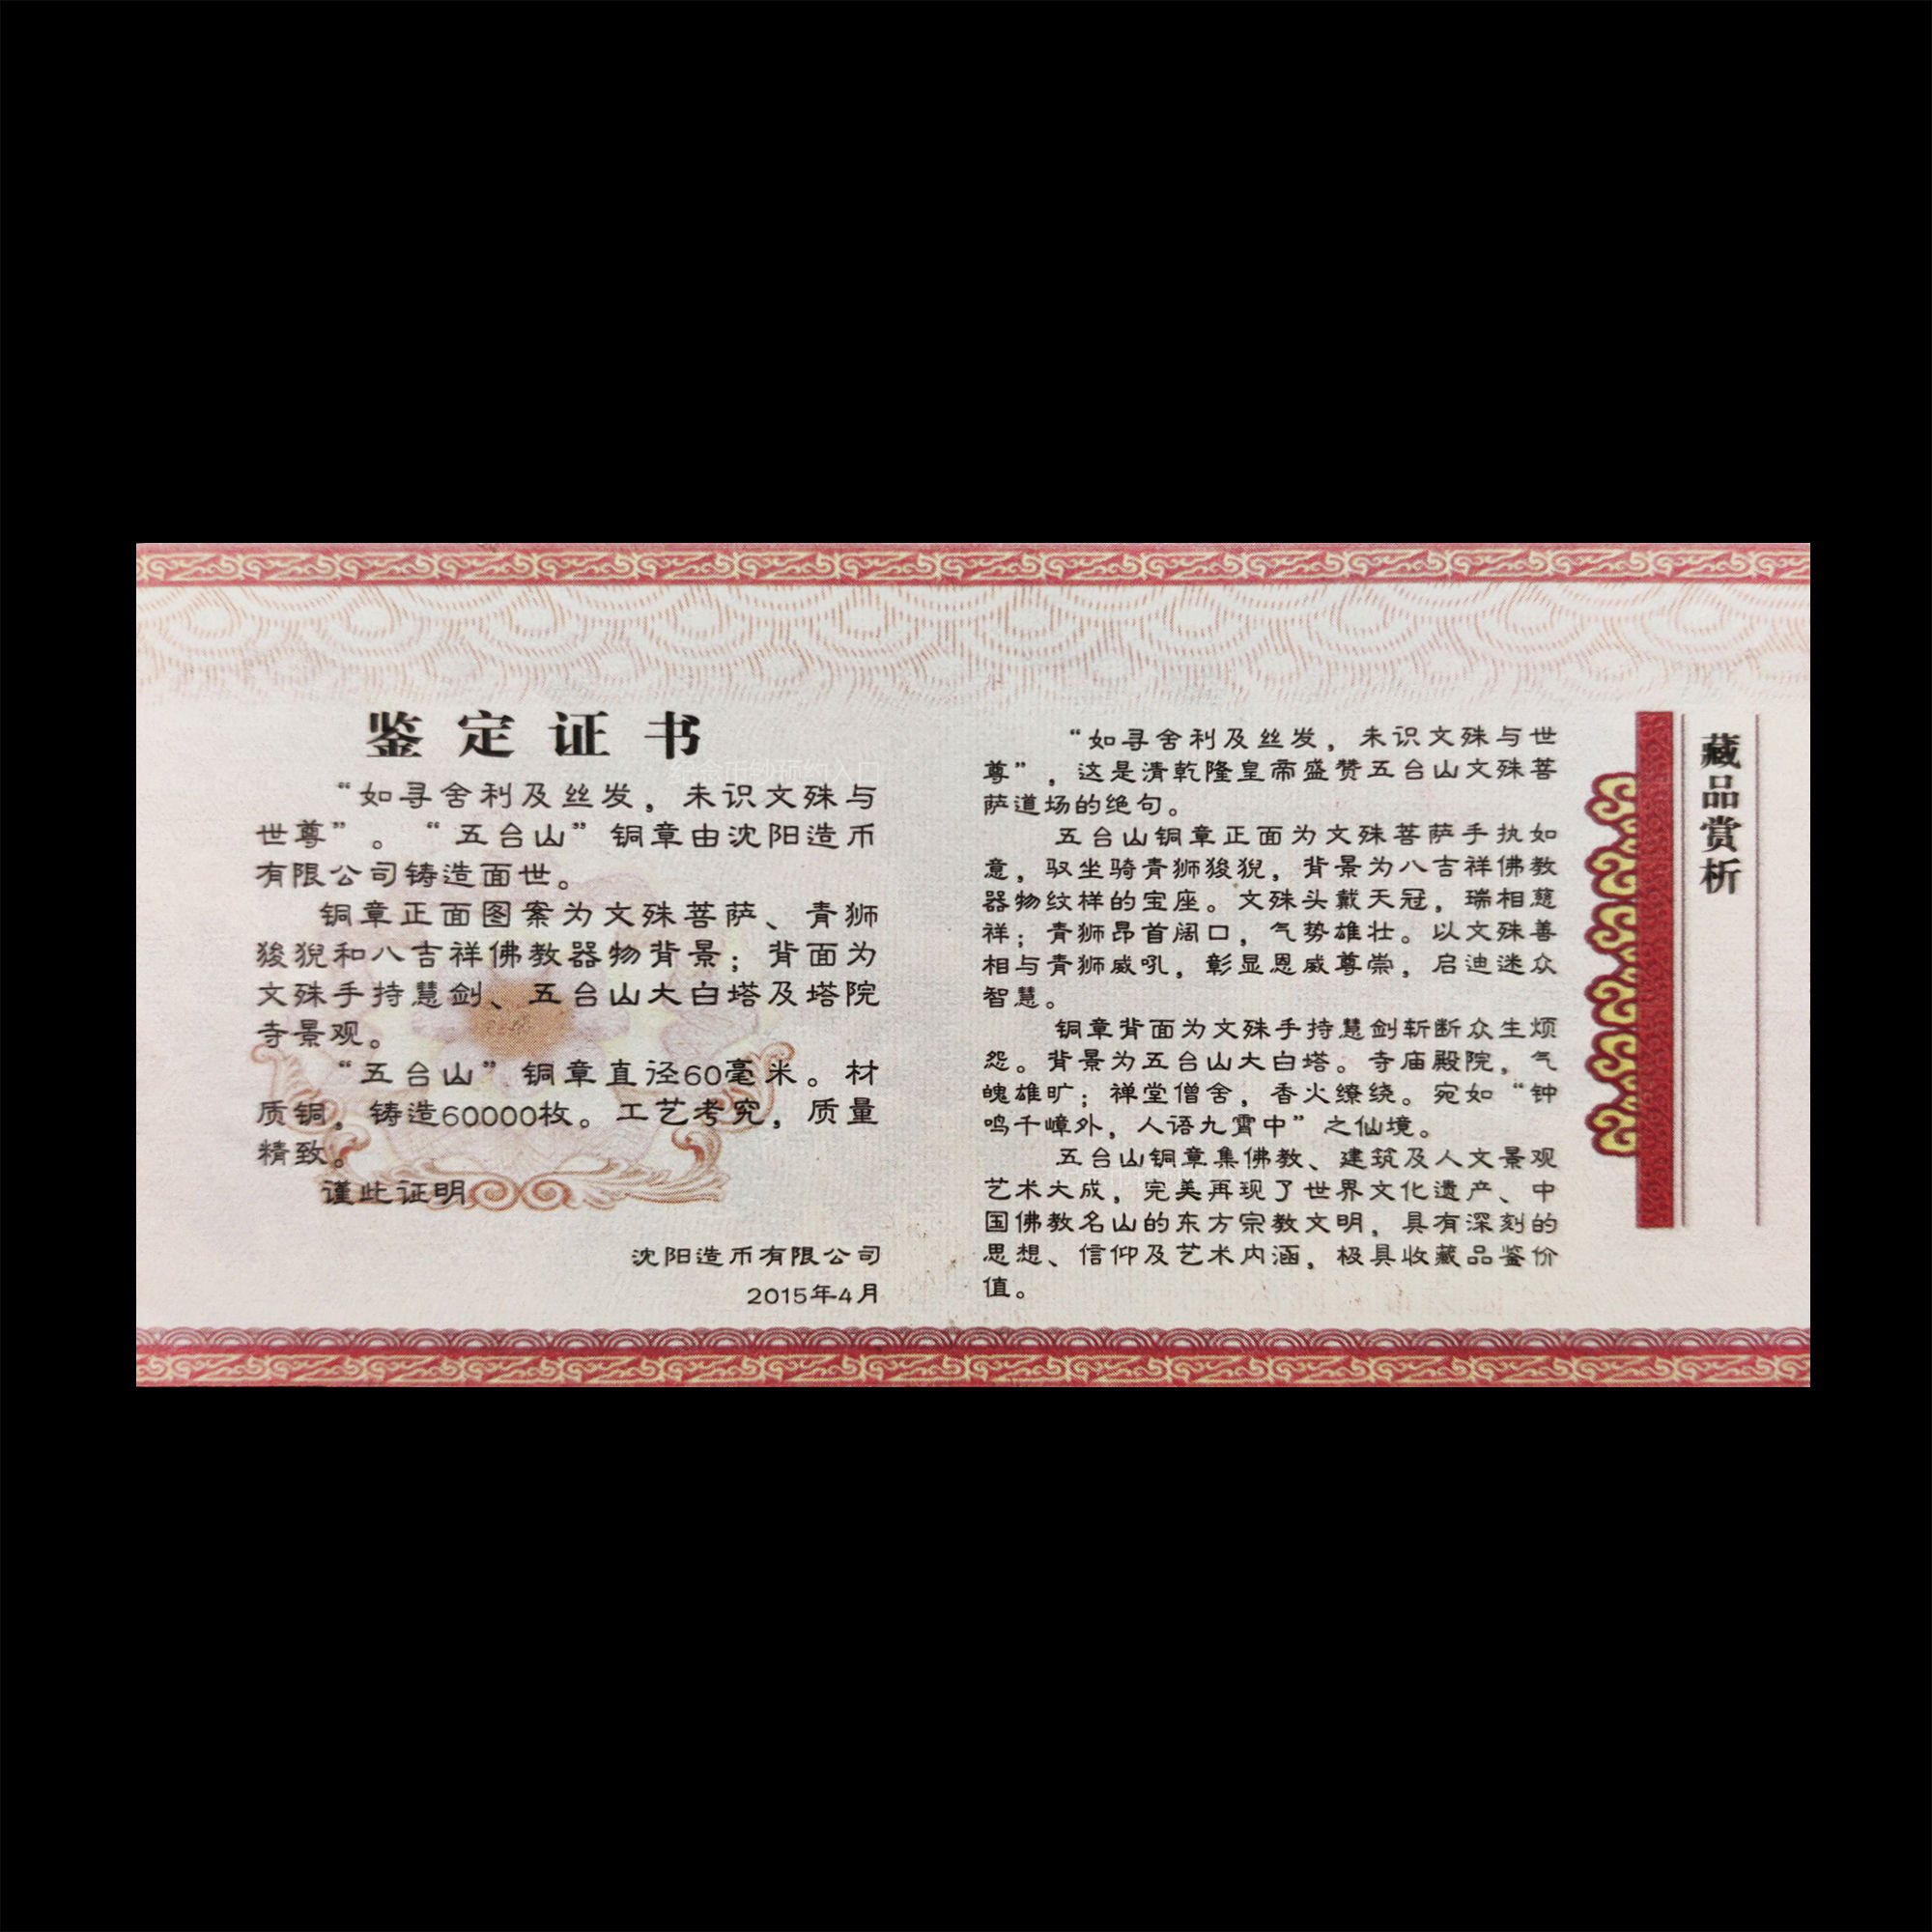 鉴定证书
“如寻舍利及丝发，未识文殊与
世尊”。“五台山”铜章由沈阳造币
有限公司铸造面世。
铜章正面图案为文殊菩萨、青狮
狻猊和八吉祥佛教器物背景；背面为
文殊手持慧剑、五台山大白塔及塔院
寺景观。
“五台山”铜章直径60毫米。材
质铜，铸造60000枚。工艺考究，质量
精致。
谨此证明
沈阳造币有限公司
2015年4月
藏品赏析
“如寻舍利及丝发，未识文殊与世
尊”，这是清乾隆皇帝盛赞五台山文殊菩
萨道场的绝句。
五台山铜章正面为文殊菩萨手执如
意，驭坐骑青狮狻猊，背景为八吉祥佛教
器物纹样的宝座。文殊头戴天冠，瑞相慈
祥；青狮昂首阔口，气势雄壮。以文殊善
相与青狮威吼，彰显恩威尊崇，启迪迷众
智慧。
铜章背面为文殊手持慧剑斩断众生烦
怨。背景为五台山大白塔。寺庙殿院，气
魄雄旷；禅堂僧舍，香火缭绕。宛如“钟
鸣千嶂外，人语九霄中”之仙境。
五台山铜章集佛教、建筑及人文景观
艺术大成，完美再现了世界文化遗产、中
国佛教名山的东方宗教文明，具有深刻的
思想、信仰及艺术内涵，极具收藏品鉴价
值。